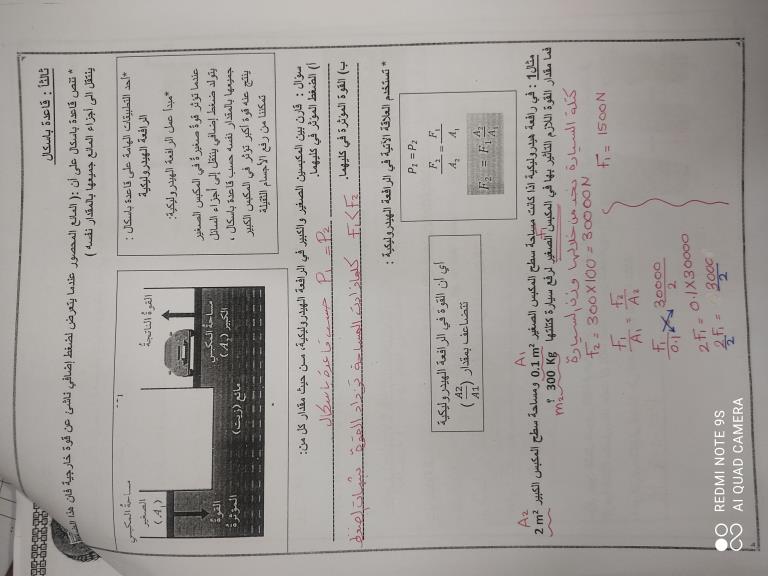 ثالثاً : قاعدة باسكال
* تنص قاعدة باسكال على أن :( المائع المحصور عندما يتعرض لضغط إضافي ناشئ عن قوة خارجية فإن هذا
ينتقل الى أجزاء المائع جميعها بالمقدار نفسه )
*أحد التطبيقات الهامة على قاعدة باسكال :
الرافعة الهيدروليكية
*مبدأ عمل الرافعة الهيدروليكية:
عندما تؤثر قوة صغيرة في المكبس الصغير
يتولد ضغط إضافي ينتقل إلى أجزاء السائل
جميعها بالمقدار نفسه حسب قاعدة باسكال ،
ينتج عنه قوة أكبر تؤثر في المكبس الكبير
تمكننا من رفع الأجسام الثقيلة
القوة الناتجة
مساحة المكبس
الكبير (A₂)
مائع (زيت)
مساحة المكبس
الصغير
(A₁)
القوة
المؤثرة
سؤال : قارن بين المكبسين الصغير والكبير في الرافعة الهيدروليكية، من حيث مقدار كل من:
أ) الضغط المؤثر في كليهما. P₁ = P₂ حسب قاعدة باسكال
ب) القوة المؤثرة في كليهما. F₁ < F₂ كلما زادت المساحة تزداد القوة بثبات الضغط
* تستخدم العلاقة الآتية في الرافعة الهيدروليكية :
P₂ = P₂
F₂/A₂ = F₁/A₁
F₂ = F₁ A₂/A₁
أي أن القوة في الرافعة الهيدروليكية
تتضاعف بمقدار (A2/A1)
مثال1 : في رافعة هيدروليكية اذا كانت مساحة سطح المكبس الصغير 0.1 m² ومساحة سطح المكبس الكبير
A₁
A₂
2 m² فما مقدار القوة اللازم التأثير بها في المكبس الصغير لرفع سيارة كتلتها 300 Kg ؟
F₁
m₂
كتلة السيارة نجد من خلالها وزن السيارة
F₂ = 300X100 = 30000N
F₁/A₁ = F₂/A₂
F₁/0.1 = 30000/2
2F₁ = 0.1X30000
2F₁/2 = 3000/2
F₁ = 1500N
REDMI NOTE 9S
AI QUAD CAMERA